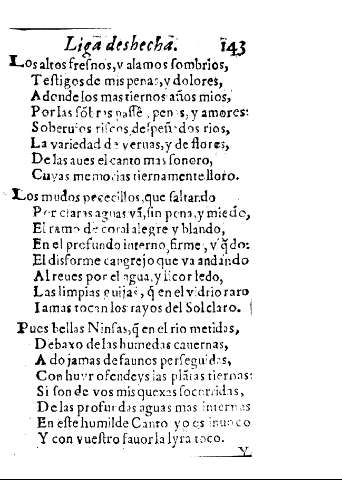 Liga deshecha. 143
Los altos fresnos, y alamos sombrios,
Testigos de mis penas, y dolores,
Adonde los mas tiernos años mios,
Por las sõbras passè, penas, y amores:
Soberuios riscos, despeñados rios,
La variedad de yeruas, y de flores,
De las aues el canto mas sonoro,
Cuyas memorias tiernamente lloro.
Los mudos pececillos, que saltando
Por claras aguas vã, sin pena, y miedo,
El ramo de coral alegre y blando,
En el profundo interno, firme, y q̃do:
El disforme cangrejo que va andando
Al reues por el agua, y licor ledo,
Las limpias guijas, q̃ en el vidrio raro
Iamas tocan los rayos del Sol claro.
Pues bellas Ninfas, q̃ en el rio metidas,
Debaxo de las humedas cauernas,
A do jamas de faunos perseguidas,
Con huyr ofendeys las plãtas tiernas:
Si son de vos mis quexas socorridas,
De las profundas aguas mas internas
En este humilde Canto yo es inuoco
Y con vuestro fauor la lyra toco.
Y